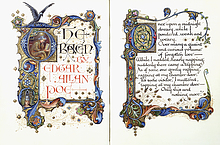 THE
RAVEN
BY
EDGAR
ALLAN
POE
Once upon a midnight
dreary, while I
pondered, weak and
weary,
Over many a quaint
and curious volume
of forgotten lore
While I nodded, nearly napping,
suddenly there came a tapping,
As of some one gently rapping,
rapping at my chamber door.
'Tis some visitor," I muttered,
"tapping at my chamber door
Only this and
nothing more."